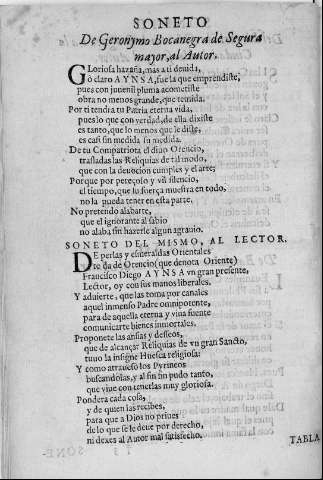 SONETO
De Geronymo Bocanegra de Segura
mayor, al Autor.
GLoriosa hazaña, mas a ti deuida,
ò claro AYNSA, fue la que emprendiste,
pues con juuenil pluma acometiste
obra no menos grande, que temida.
Por ti tendra tu Patria eterna vida,
pues lo que con verdad, de ella dixiste
es tanto, que lo menos que le diste,
es casi sin medida su medida.
De tu Compatriota el diuo Orencio,
trasladas las Reliquias de tal modo,
que con la deuocion cumples y el arte;
Porque por pereçoso y vn silencio,
el tiempo, que lo fuerça muestra en todo,
no la pueda tener en esta parte.
No pretendo alabarte,
que el ignorante al sabio
no alaba sin hazerle algun agrauio.
SONETO DEL MISMO, AL LECTOR.
DE perlas y esmeraldas Orientales
de Orencio (que denota Oriente)
Francisco Diego AYNSA vn gran presente,
Lector, oy con sus manos liberales.
Y aduierte, que las toma por canales
aquel inmenso Padre omnipotente,
para de aquella eterna y viua fuente
comunicarte bienes inmortales.
Proponete las ansias y desseos,
que de alcançar Reliquias de vn gran Sancto,
tuuo la insigne Huesca religiosa:
Y como atrauesò los Pyrineos
buscandolas, y al fin sin pudo tanto,
que viue con tenerlas muy gloriosa.
Pondera cada cosa,
y de quien las recibes,
para que a Dios no priues
de lo que se le deue por derecho,
ni dexes al Autor mal satisfecho.
TABLA